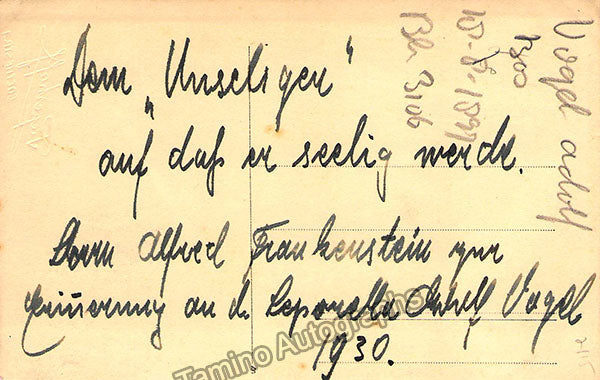 Dem „Unseligen"
auf daß er seelig werde.
Herrn Alfred Frankenstein zur
Erinnerung an d. Leporello Adolf Vogel
1930.
Vogel Adolf
1300
18-8-1897
Tamino Autographs